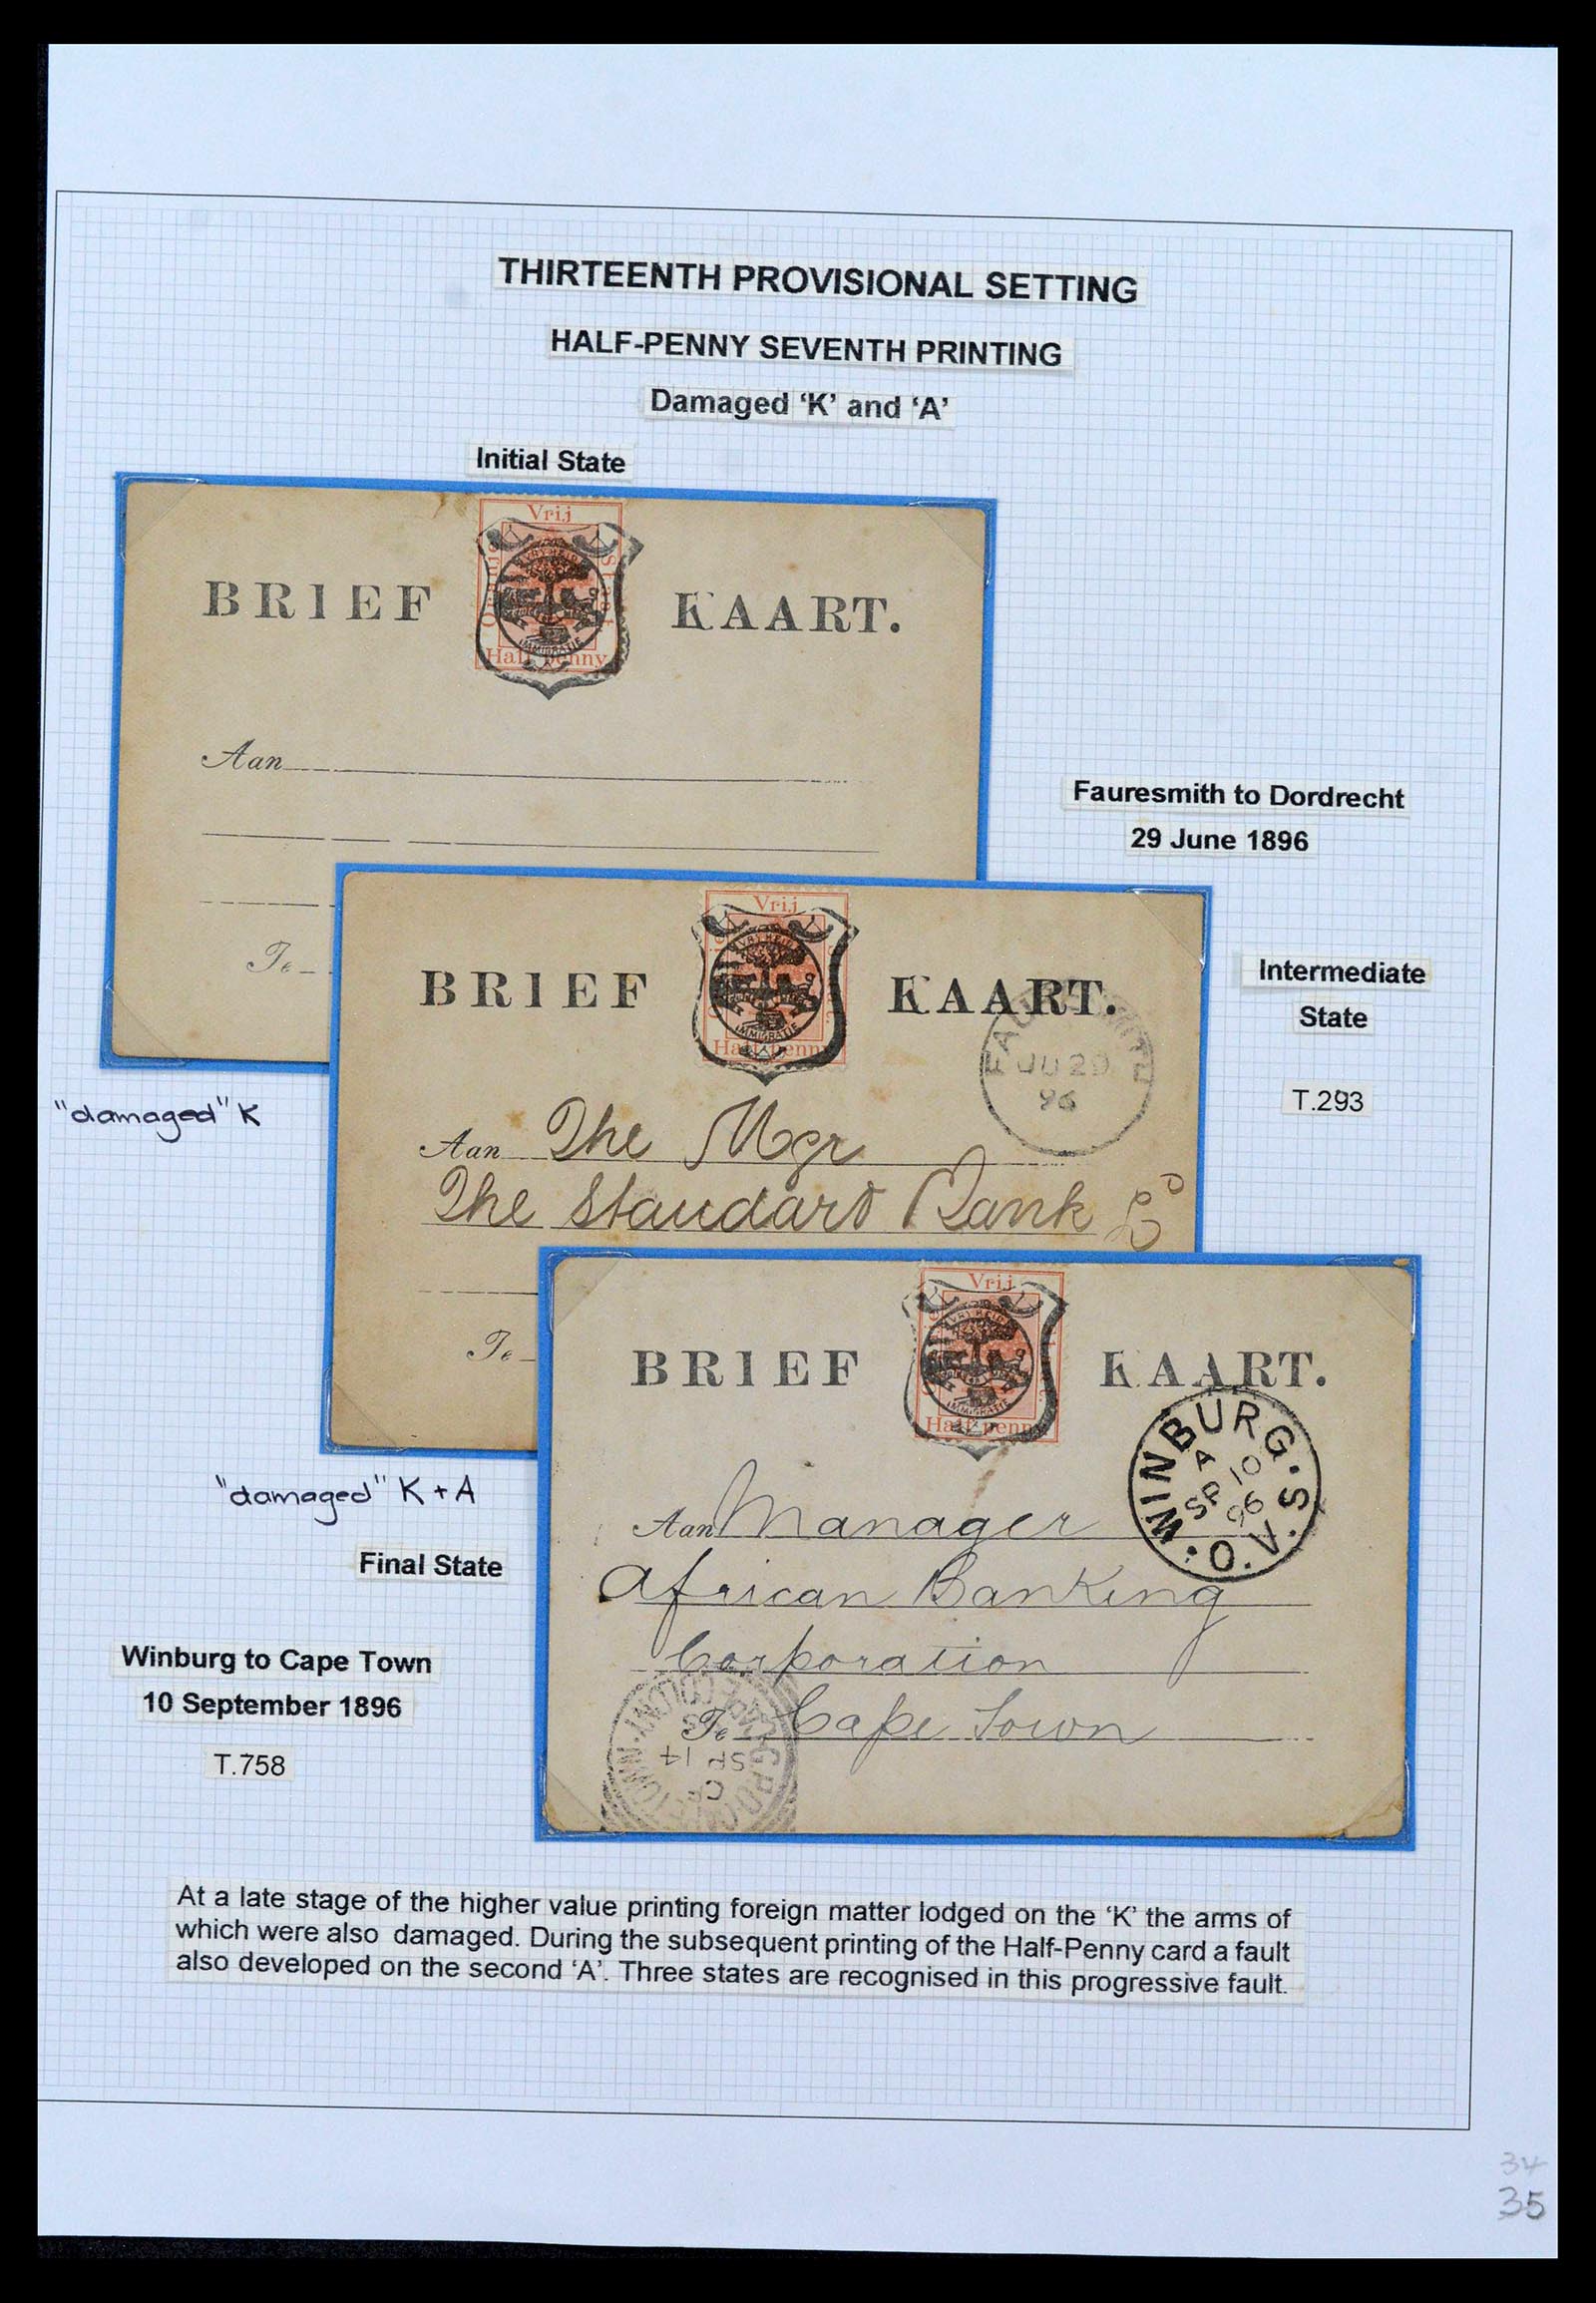 THIRTEENTH PROVISIONAL SETTING
HALF-PENNY SEVENTH PRINTING
Damaged ‘K’ and ‘A’
Initial State
Vrij
BRIEF KAART.
VRYHEID
IMMIGRATIE
Half penny
Aan
Te
"damaged" K
Fauresmith to Dordrecht
29 June 1896
Intermediate
State
T.293
Vrij
BRIEF KAART.
VRYHEID
IMMIGRATIE
Half penny
JU 29
96
Aan The Mgr
The Standard Bank Ld
Te
"damaged" K + A
Final State
Winburg to Cape Town
10 September 1896
T.758
Vrij
BRIEF KAART.
VRYHEID
IMMIGRATIE
Half penny
WINBURG. O.V.S.
A
SP 10
96
Aan Manager
African Banking
Corporation
Te Cape Town
SP 14
At a late stage of the higher value printing foreign matter lodged on the ‘K’ the arms of
which were also damaged. During the subsequent printing of the Half-Penny card a fault
also developed on the second ‘A’. Three states are recognised in this progressive fault.
34
35